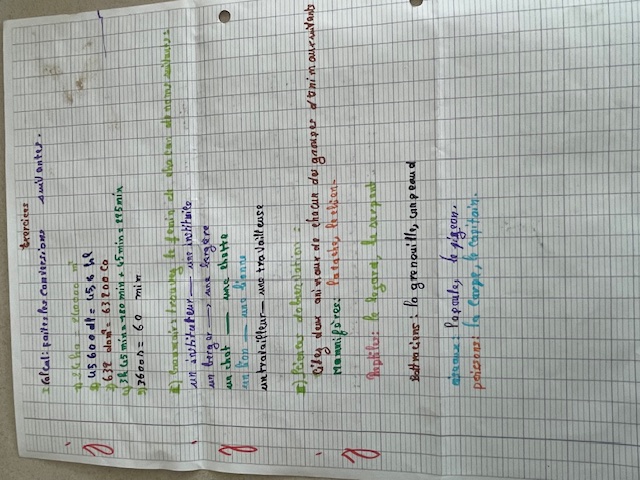 Exercices
I Calcul: faites les conversions suivantes.
1) 24 ha = 240000 m²
2) 45600 dl = 45,6 hl
3) 632 dam² = 63200 ca
4) 3h 45 min = 180 min + 45 min = 225 min
5) 3600s = 60 min
II) Grammaire: trouve le féminin de chacun de noms suivants:
un instituteur — une institutrice
un berger → une bergère
un chat — une chatte
un lion — une lionne
un travailleur — une travailleuse
III)
Citez deux animaux de chacun des groupes d'animaux suivants
Mammifères: la vache, le chien-
Reptile: le lézard, le serpent.
Battraciens: la grenouille, crapeaud
oiseaux: la poule, le pigeon.
poissons: la carpe, le capitain.